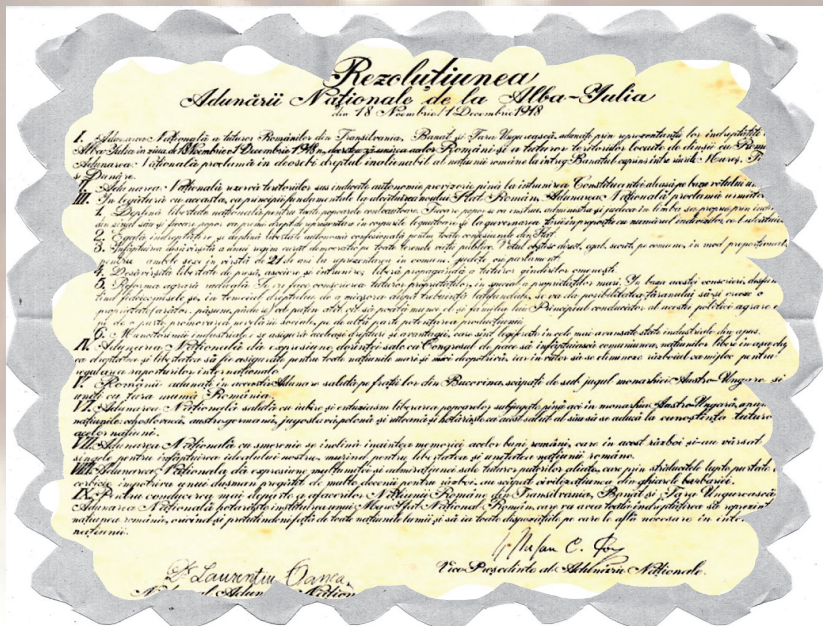 Rezoluțiunea
Adunării Naționale de la Alba-Iulia
din 18 Noembrie/1 Decembrie 1918
I. Adunarea Națională a tuturor Românilor din Transilvania, Banat și Țara Ungurească, adunați prin reprezentanții lor îndreptățiți
Alba Iulia în ziua de 18 Noembrie/1 Decembrie 1918 acelor Români și a tuturor teritoriilor locuite de dînșii cu Româ
Adunarea Națională proclamă în deosebi dreptul inalienabil al națiunii române la întreg Banatul cuprins între rîurile Mureș, Ti
și Dunăre.
II. Adunarea Națională rezervă teritoriilor sus indicate autonomie provizorie pînă la întrunirea Constituantei aleasă pe baza votului un
III. În legătură cu aceasta, ca principii fundamentale la alcătuirea noului Stat Român, Adunarea Națională proclamă următo
1. Deplină libertate națională pentru toate popoarele conlocuitoare. Fiecare popor se va administra și judeca în limba sa proprie prin indiv
din sînul său și fiecare popor va primi drept de reprezentare în corpurile legiuitoare și la guvernarea țării în proporție cu numărul indivizilor ce-l alcătuiesc
2. Egală îndreptățire și deplină libertate autonomă confesională pentru toate confesiunile din Stat.
3. Înfăptuirea desăvîrșită a unui regim curat democratic pe toate terenele vieții publice. Votul obștesc, direct, egal, secret, pe comune, în mod proporțional,
pentru ambele sexe, în vîrstă de 21 de ani la reprezentarea în comune, județe ori parlament.
4. Desăvîrșită libertate de presă, asociere și întrunire, liberă propagandă a tuturor gîndurilor omenești.
5. Reforma agrară radicală. Se va face conscrierea tuturor proprietăților, în special a proprietăților mari. În baza acestei conscrieri, desfiin
țînd fideicomisele și, în temeiul dreptului de a micșora după trebuință latifundiile, se va da posibilitatea țăranului să-și creeze o
proprietate (arător, pășune, pădure) cel puțin atît cît să poată munci el și familia lui. Principiul conducător al acestei politici agrare e
pe de o parte promovarea nivelării sociale, pe de altă parte potențarea producțiunii.
6. Muncitorimii industriale i se asigură aceleași drepturi și avantagii, care sînt legiferate în cele mai avansate state industriale din apus.
IV. Adunarea Națională dă expresiune dorinței sale ca Congresul de pace să înfăptuiască comuniunea națiunilor libere în așa chip,
ca dreptatea și libertatea să fie asigurate pentru toate națiunile mari și mici deopotrivă, iar în viitor să se elimineze războiul ca mijloc pentru
regularea raporturilor internaționale.
V. Românii adunați în această Adunare salută pe frații lor din Bucovina, scăpați de sub jugul monarhiei Austro-Ungare și
uniți cu țara mumă România.
VI. Adunarea Națională salută cu iubire și entuziasm liberarea popoarelor subjugate pînă aci în monarhia Austro-Ungară, anume
națiunile: cehoslovacă, austrogermană, jugoslavă, polonă și ruteană și hotărăște ca acest salut al său să se aducă la cunoștința tuturor
acelor națiuni.
VII. Adunarea Națională cu smerenie se închină înaintea memoriei acelor bravi români, care în acest război și-au vărsat
sîngele pentru înfăptuirea idealului nostru, murind pentru libertatea și unitatea națiunii române.
VIII. Adunarea Națională dă expresiune mulțumirei și admirațiunei sale tuturor puterilor aliate, care prin strălucitele lupte purtate
cerbicie împotriva unui dușman pregătit de multe decenii pentru război, au scăpat civilizațiunea din ghiarele barbariei.
IX. Pentru conducerea mai departe a afacerilor Națiunii Române din Transilvania, Banat și Țara Ungurească
Adunarea Națională hotărăște instituirea unui Mare Sfat Național Român, care va avea toată îndreptățirea să reprezint
națiunea română, oricînd și pretutindeni față de toate națiunile lumii și să ia toate dispozițiile pe care le află necesare în inter
națiunii.
Dr Laurențiu Oanea
Ștefan C. Pop
Vice-Președinte al Adunării Naționale.